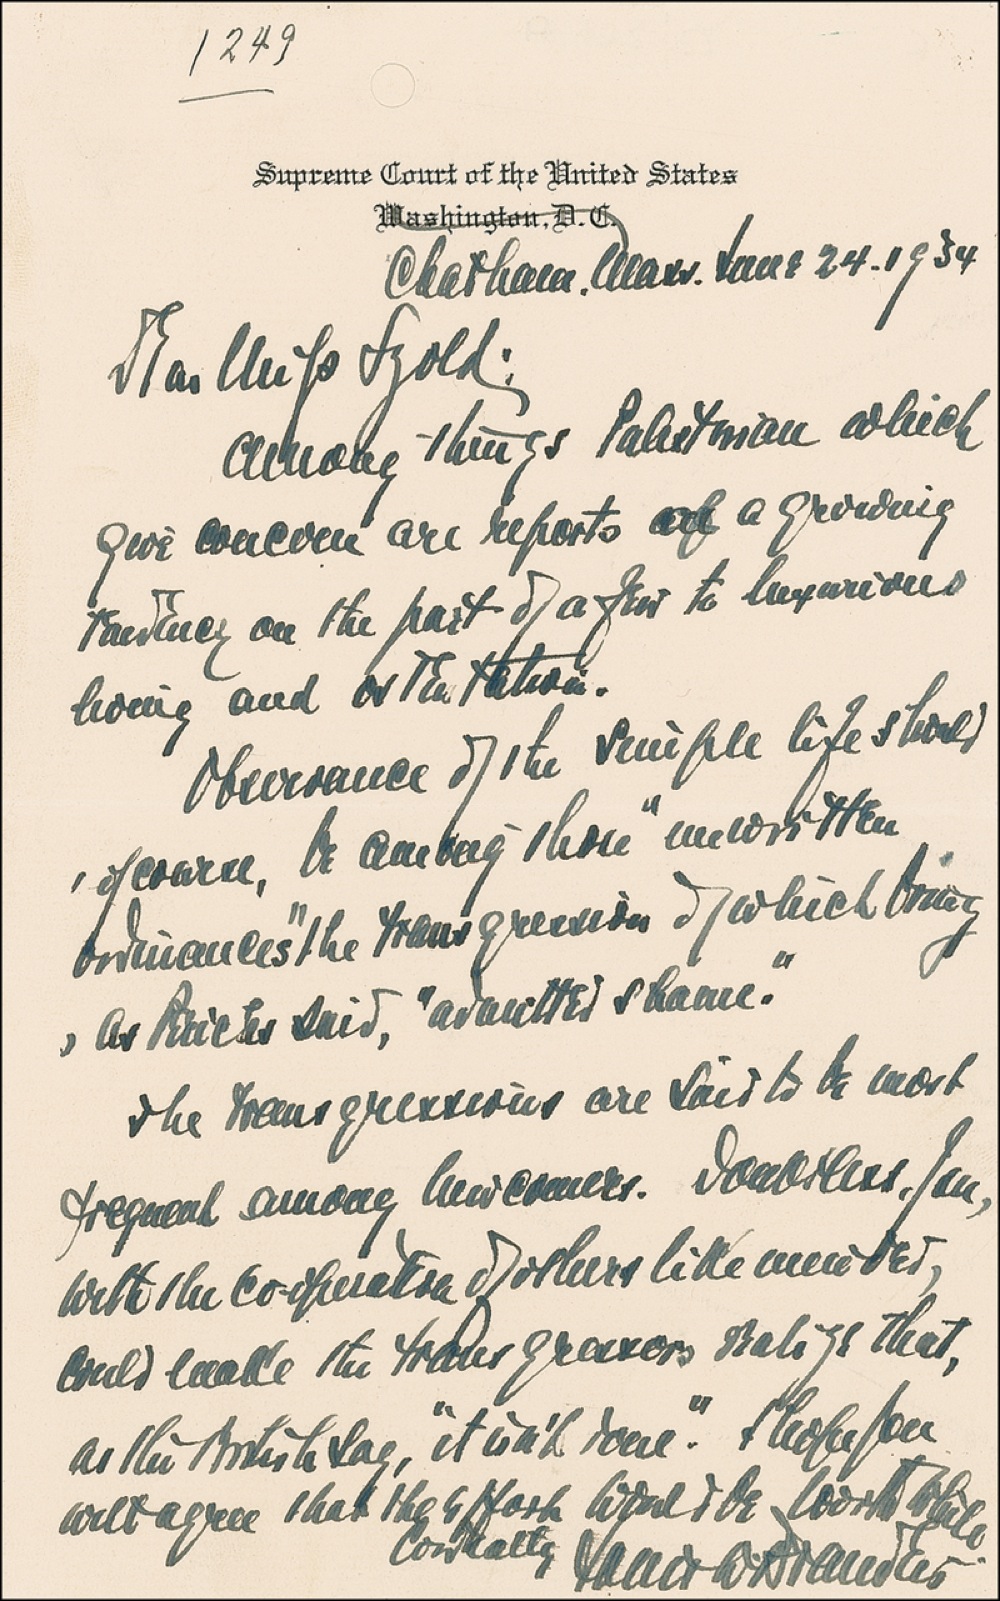 1249
Supreme Court of the United States
Washington, D.C.
Chatham, Mass. June 24. 1934
Dear Miss Szold:
Among things Palestinian which
give concern are reports of a growing
tendency on the part of a few to luxurious
living and ostentation.
Observance of the simple life should
, of course, be among those "unwritten
ordinances" the transgression of which bring
, as Pericles said, "admitted shame."
The transgressions are said to be most
frequent among newcomers. Doubtless, you,
with the co-operation of others like minded,
could make the transgressors realize that,
as the British say, "it isn't done." I hope you
will agree that the effort would be worth while
Cordially
Louis D Brandeis